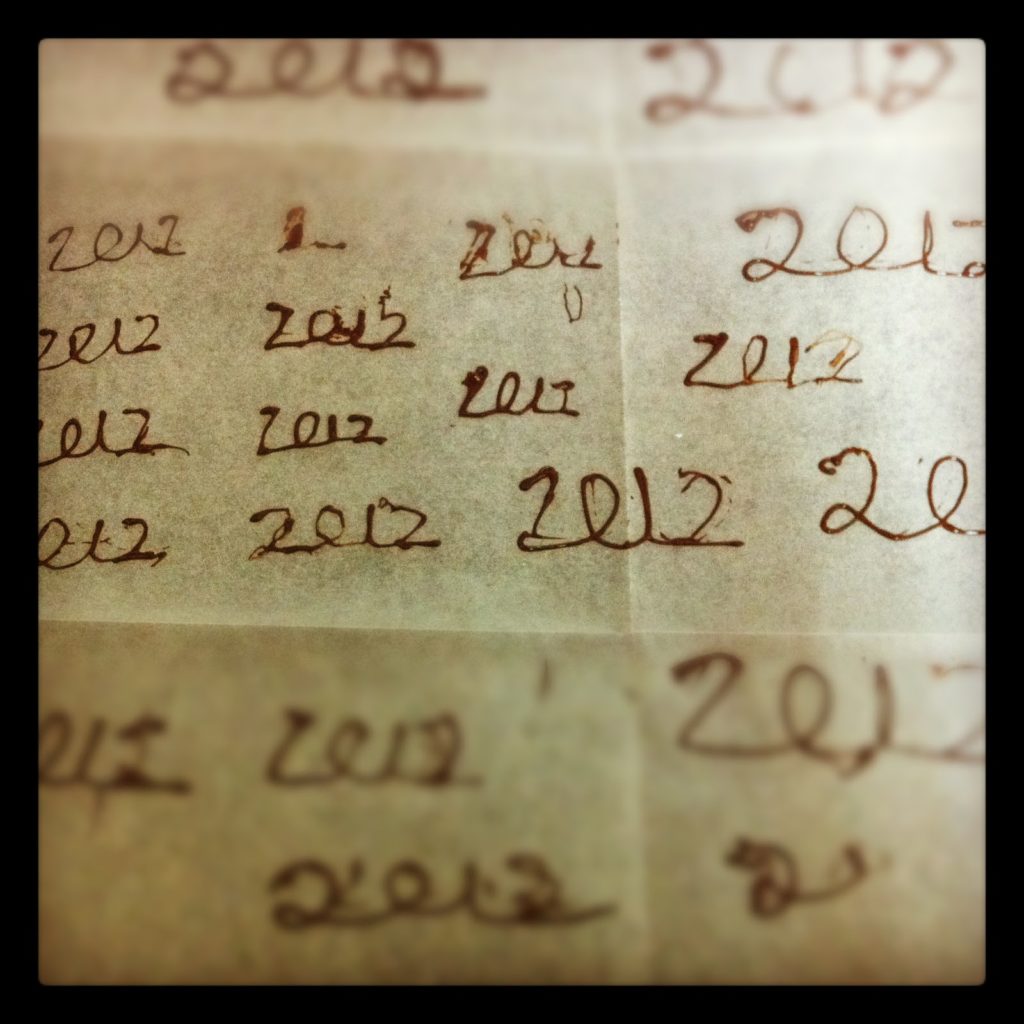 2012 2012
2012 2012 2012
2012 2015 2012
2012 2012 2012
2012 2012 2012 20
012 2012 2012
2012 2